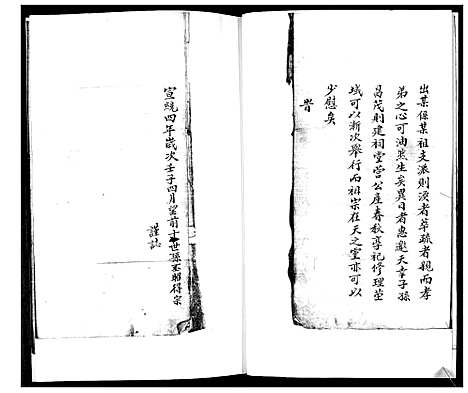 出某係某祖支派則渙者萃疏者親而孝
弟之心可油然生矣異日者惠邀天幸子孫
昌茂則建祠堂营公産春秋享祀修理塋
域可以漸次舉行而祖宗在天之靈亦可以
少慰矣
旹
宣統四年歲次壬子四月望前十世孫丕照得宗
謹誌